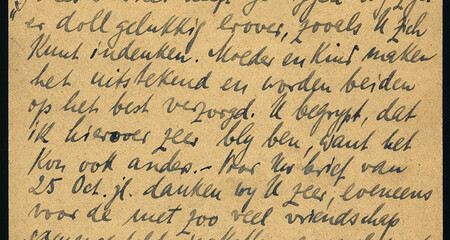 er dolgelukkig erover, zooals U zich
kunt indenken. Moeder en Kind maken
het uitstekend en worden beiden
op het best verzorgd. U begrypt, dat
ik hierover zeer bly ben, want het
kon ook anders.- Voor Uw brief van
25 Oct. jl. danken wy U zeer, eveneens
voor de met zoo veel vriendschap